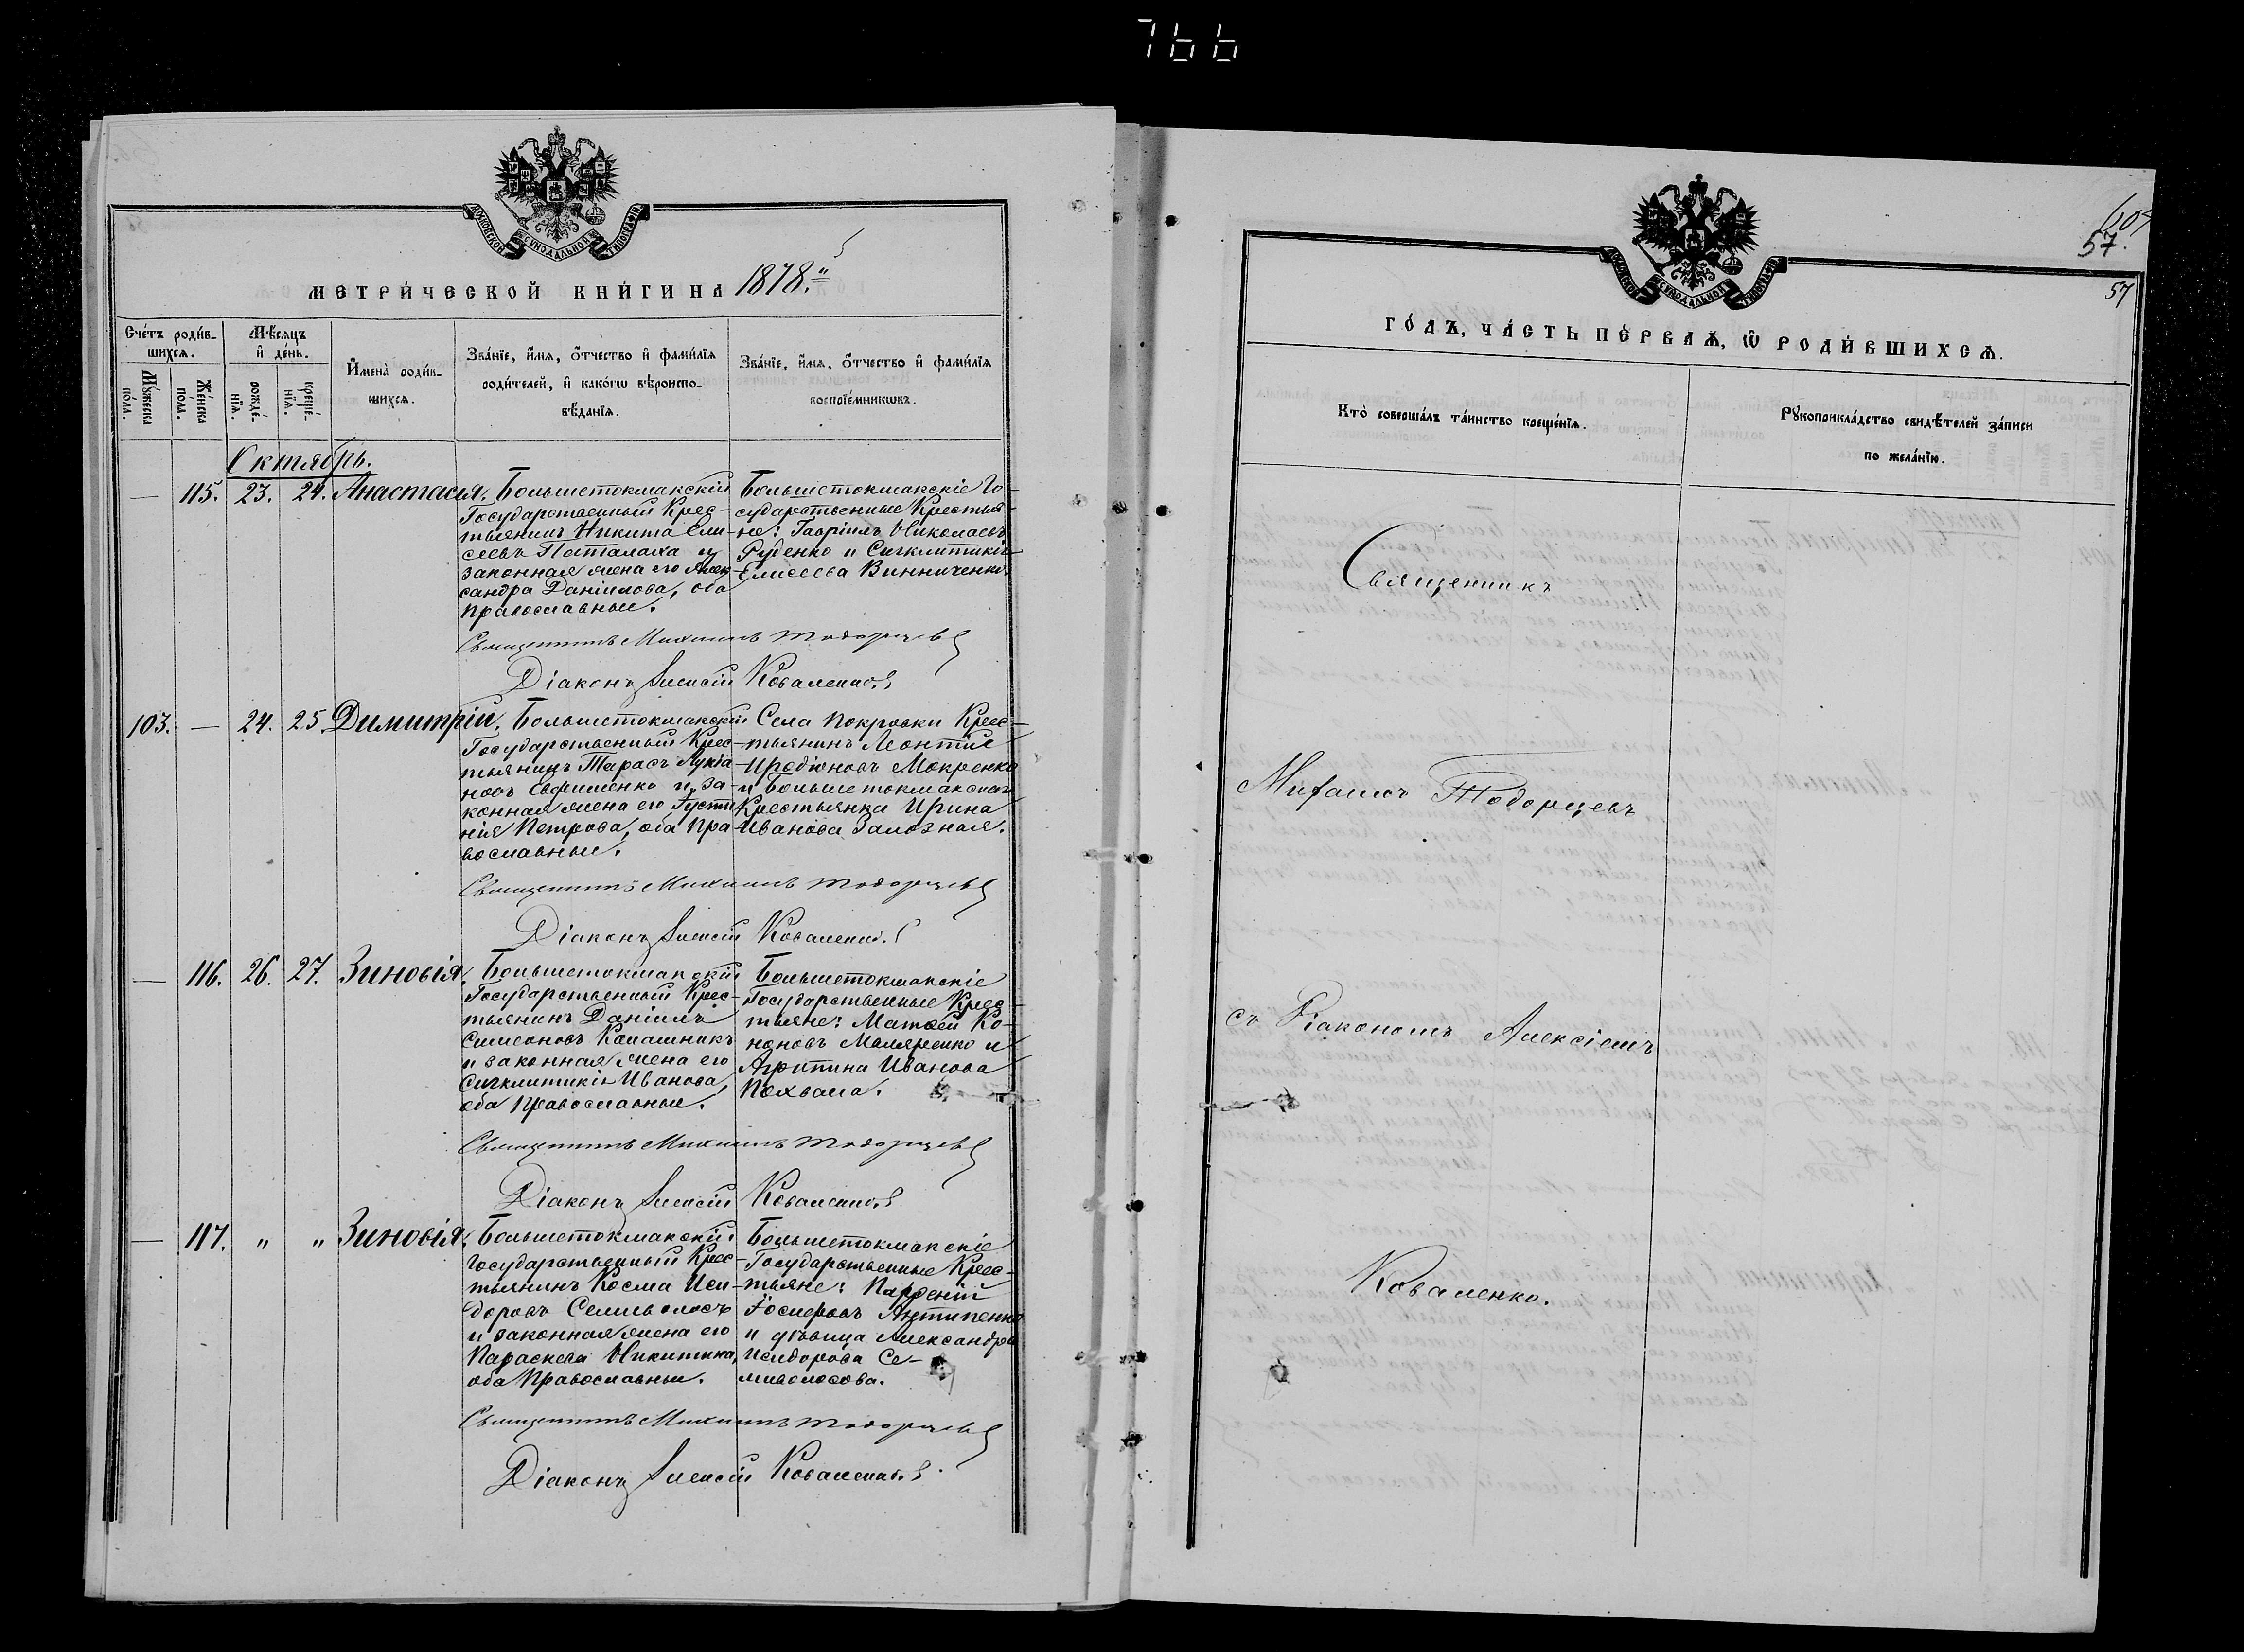 766
МОСКОВСКОЙ СѴНОДАЛЬНОЙ ТИПОГРАФІИ
МЕТРИ́ЧЕСКОЙ КНИ́ГИ НА 1878.
Сче́тъ роди́в-
шихсѧ.
Мѣ́сяцъ
и҆ де́нь.
И҆мена̀ роди́в-
шихсѧ.
Зва́нїе, и҆́мѧ, ѻ҆́тчество и҆ фами́лїѧ
роди́телей, и҆ како́гѡ вѣ̑роиспо-
вѣ́данїѧ.
Зва́нїе, и҆́мѧ, ѻ҆́тчество и҆ фами́лїѧ
воспрїе́мникѡвъ.
Мꙋ́жеска по́ла.
Же́нска по́ла.
рожде́-нїѧ.
креще́-нїѧ.
Октябрь.
— 115. 23. 24. Анастасія.
Большетокмакскій
Государственный Крес-
тьянинъ Никита Ели-
сеевъ Паталаха и
законная жена его Алек-
сандра Даніилова, оба
православные.
Большетокмакскіе Го-
сударственные Крестья-
не: Гавріилъ Николаевъ
Руденко и Сигклитикія
Елисеева Винниченко.
Священникъ Михаилъ Тодорцевъ
Діаконъ Алексій Коваленко.
103. — 24. 25. Димитрій.
Большетокмакскій
Государственный Крес-
тьянинъ Тарасъ Лукіа-
новъ Евфименко и за-
конная жена его Густи
нія Петрова, оба пра-
вославные.
Села Покровки Крес-
тьянинъ Леонтій
Иродіоновъ Мокренко
и Большетокмакская
Крестьянка Ирина
Иванова Зализная.
Священникъ Михаилъ Тодорцевъ
Діаконъ Алексій Коваленко.
— 116. 26. 27. Зиновія.
Большетокмакскій
Государственный Крес-
тьянинъ Даніилъ
Симеоновъ Калашникъ
и законная жена его
Сигклитикія Иванова,
оба православные.
Большетокмакскіе
Государственные Крес-
тьяне: Матѳей Ко-
ноновъ Маляренко и
Агрипина Иванова
Похвала.
Священникъ Михаилъ Тодорцевъ
Діаконъ Алексій Коваленко.
— 117. " " Зиновія.
Большетокмакскій
Государственный Крес-
тьянинъ Косма Иси-
доровъ Семиволосъ
и законная жена его
Параскева Никитина,
оба православные.
Большетокмакскіе
Государственные Крес-
тьяне: Парѳеній
Іосифовъ Антипенко
и дѣвица Александра
Исидорова Се-
миволосова.
Священникъ Михаилъ Тодорцевъ
Діаконъ Алексій Коваленко.
57.
57
МОСКОВСКОЙ СѴНОДАЛЬНОЙ ТИПОГРАФІИ
ГО́ДЪ, ЧА́СТЬ ПЕ́РВАѦ, Ѡ҆ РОДИ́ВШИХСѦ.
Кто̀ соверша́лъ та́инство креще́нїѧ.
Рꙋкоприкла́дство свидѣ́телей за́писи
по жела́нїю.
Священникъ
Михаилъ Тодорцевъ
съ Діакономъ Алексіемъ
Коваленко.